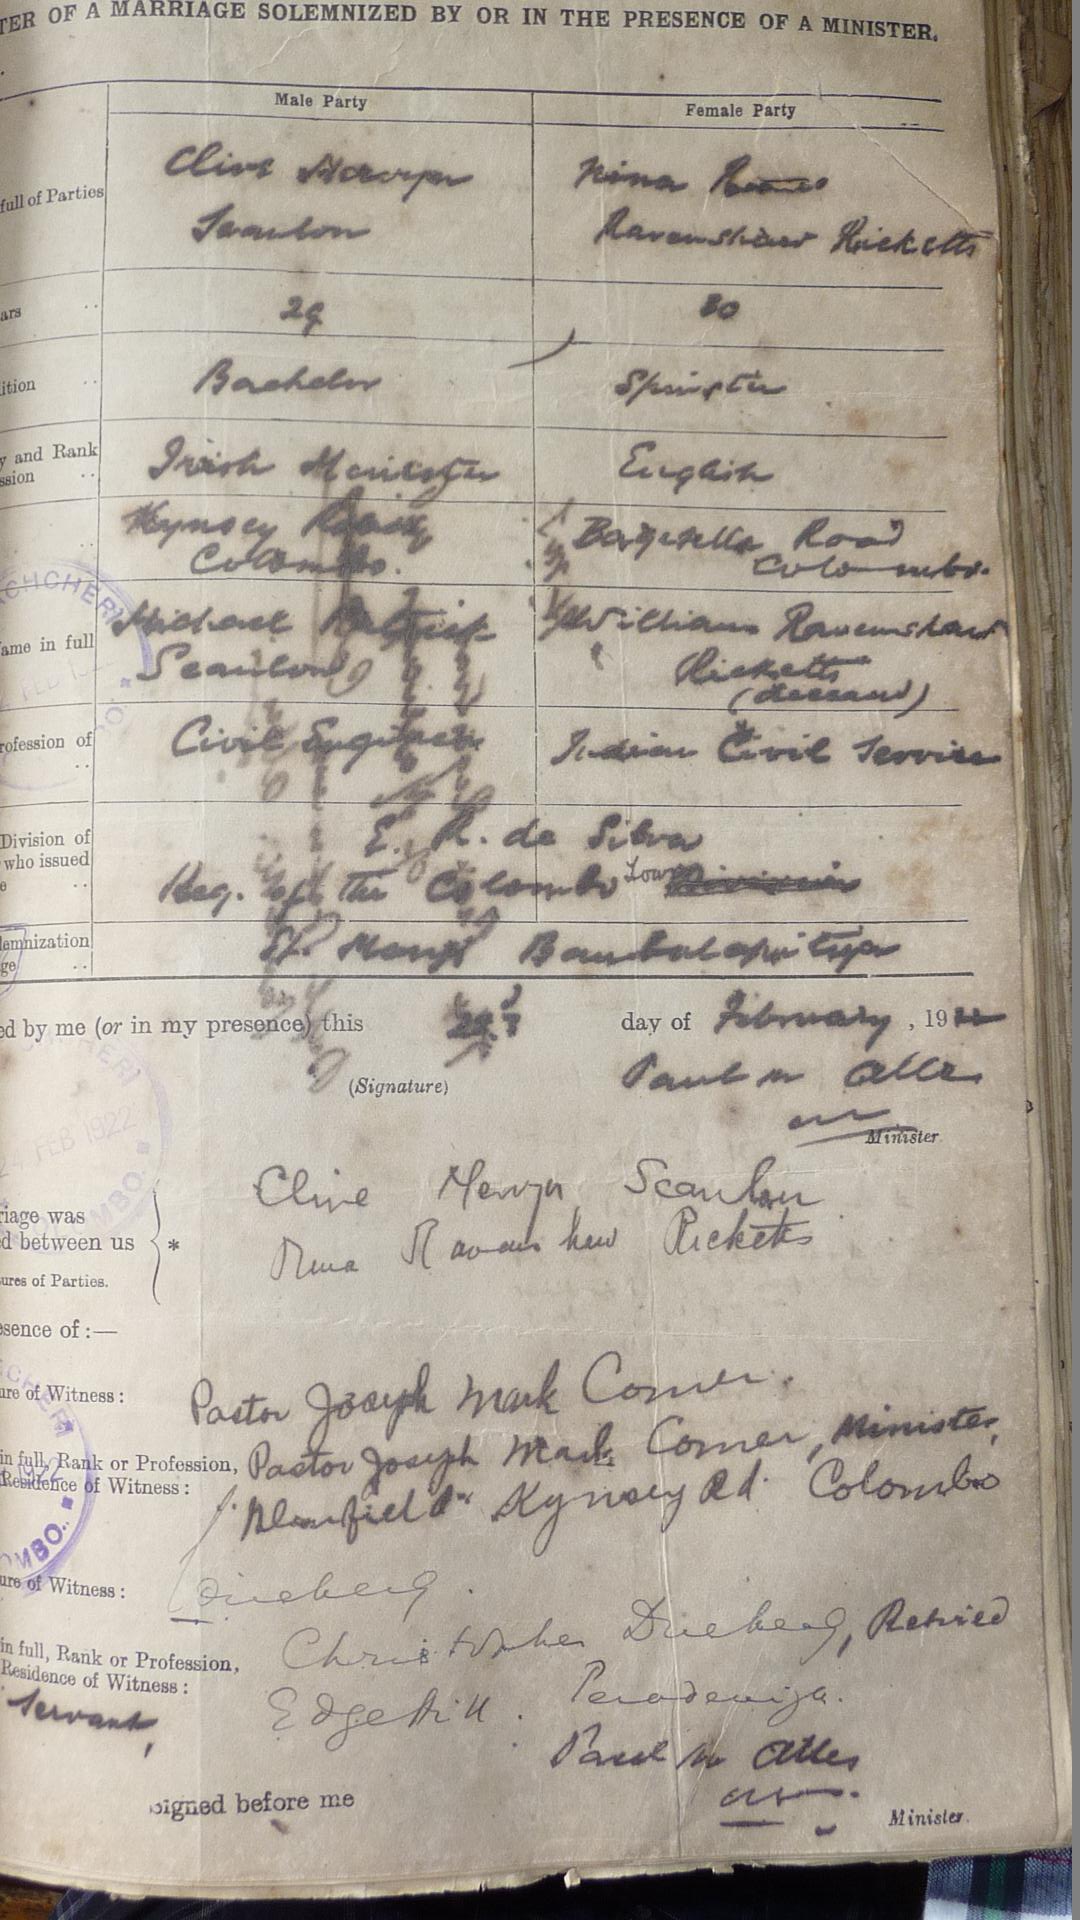 TER OF A MARRIAGE SOLEMNIZED BY OR IN THE PRESENCE OF A MINISTER.
Male Party Female Party
full of Parties
Clive Mervyn Nina
Scanlon Ravenshaw Ricketts
ars 29 30
ition Bachelor Spinster
y and Rank
ssion Irish Minister English
Kynsey Road Bagatelle Road
Colombo. Colombo.
ame in full Michael Patrick William Ravenshaw
Scanlon Ricketts
(deceased)
rofession of Civil Engineer Indian Civil Service
Division of E. R. de Silva
who issued
e Reg. of the Colombo Town
lemnization
ge St. Mary's Bambalapitiya
ed by me (or in my presence) this day of February, 1922
(Signature) Paul M Alles
Minister
Clive Mervyn Scanlon
riage was
d between us * Nina Ravenshaw Ricketts
ures of Parties.
esence of :—
ure of Witness : Pastor Joseph Mark Comer.
in full, Rank or Profession, Pastor Joseph Mark Comer, Minister,
Residence of Witness : Kynsey Rd Colombo
ure of Witness :
in full, Rank or Profession, Christopher Drieberg, Retired
Residence of Witness :
Servant, Edgehill. Peradeniya.
Signed before me Paul M Alles
Minister.
ACHCHERI
24 FEB 1922
COLOMBO.